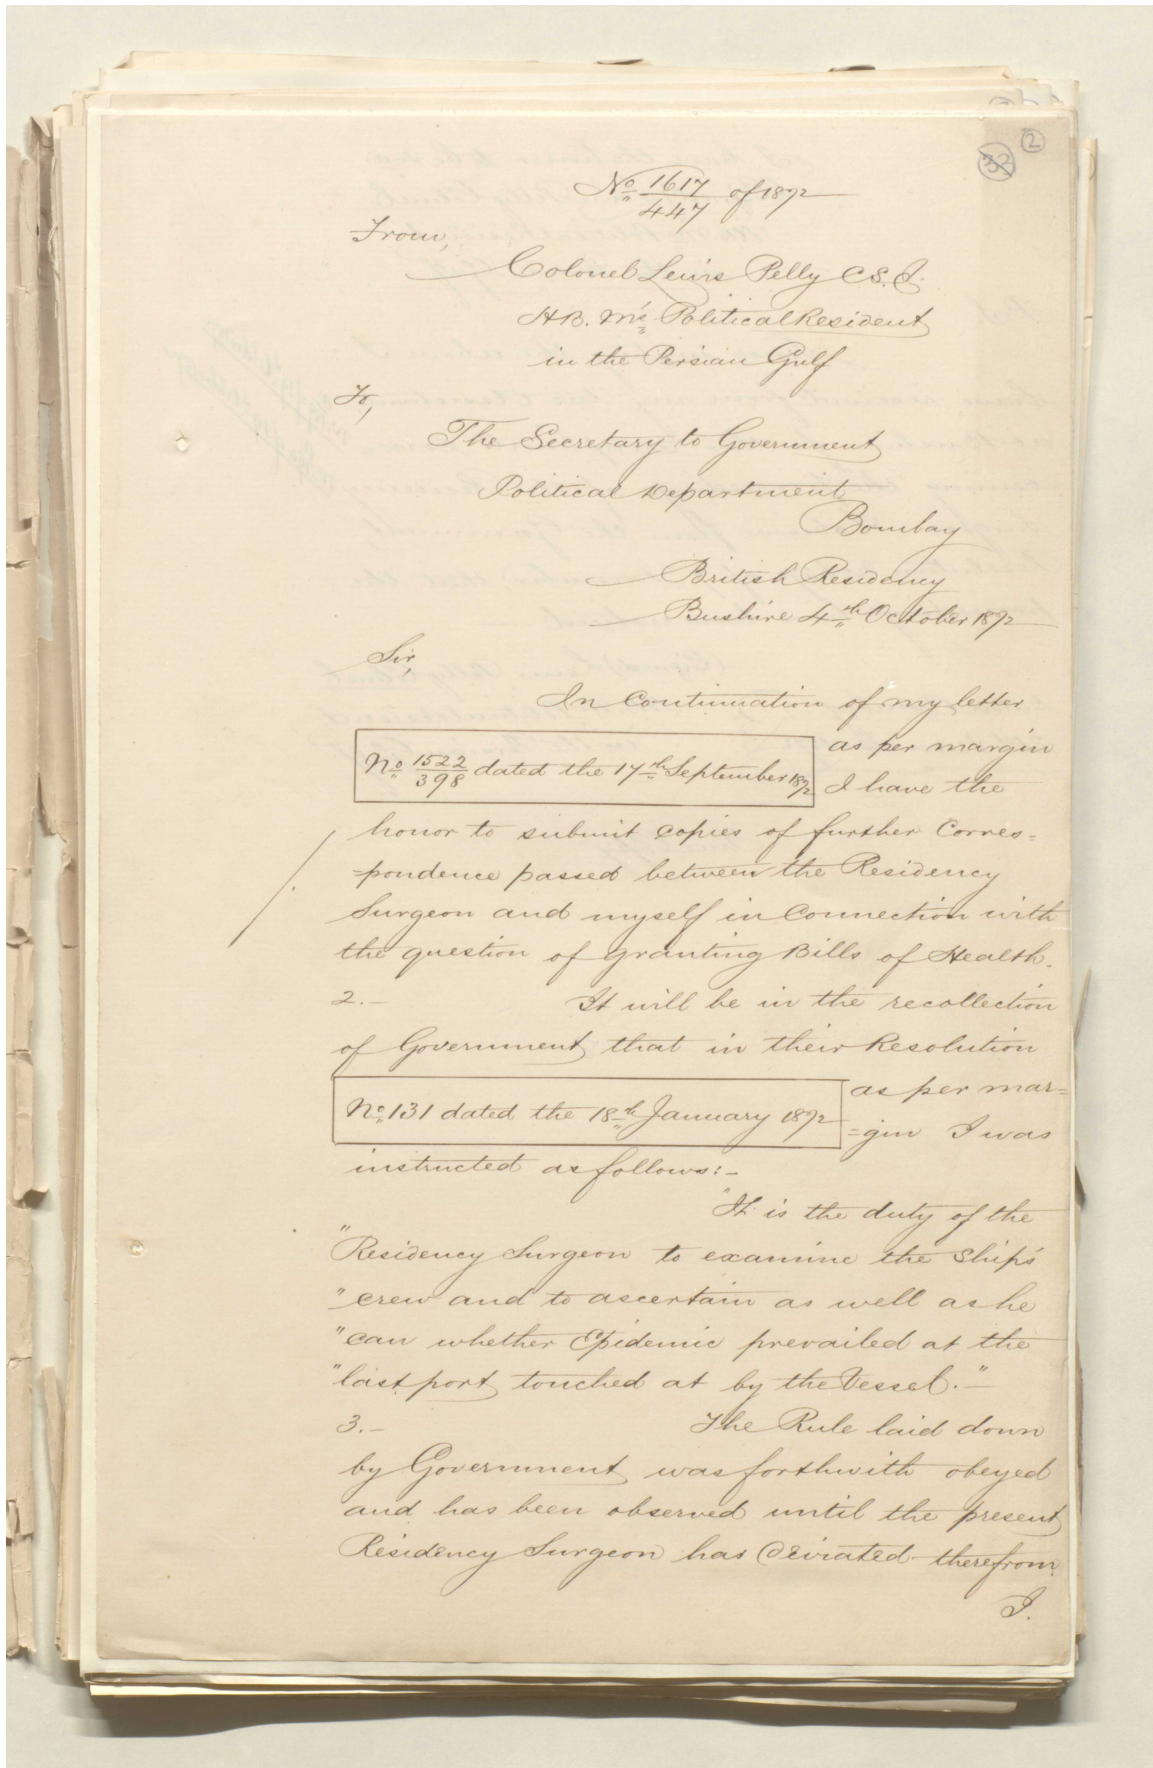 2
32
No 1617/447 of 1872
From,
Colonel Lewis Pelly C.S.I.
H.B.M's Political Resident
in the Persian Gulf
To,
The Secretary to Government
Political Department
Bombay
British Residency
Bushire 4th October 1872
Sir,
In Continuation of my letter
as per margin
No 1522/398 dated the 17th September 1872
I have the
honor to submit copies of further Corres=
=pondence passed between the Residency
Surgeon and myself in Connection with
the question of granting Bills of Health.
2.- It will be in the recollection
of Government that in their Resolution
as per mar=
No 131 dated the 18th January 1872
=gin I was
instructed as follows:-
"It is the duty of the
"Residency Surgeon to examine the Ship's
"crew and to ascertain as well as he
"can whether Epidemic prevailed at the
"last port touched at by the Vessel."-
3.- The Rule laid down
by Government was forthwith obeyed
and has been observed until the present
Residency Surgeon has deviated therefrom.
I.